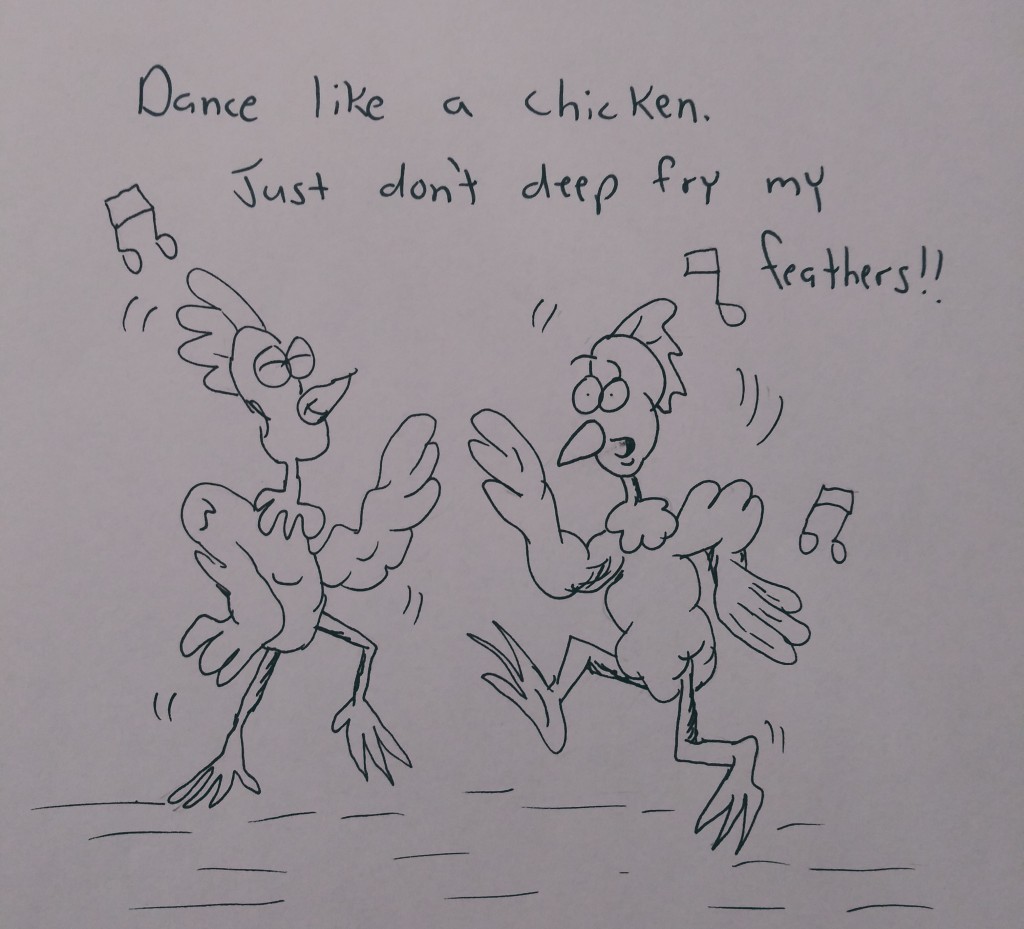 Dance like a chicken.
Just don't deep fry my
feathers!!